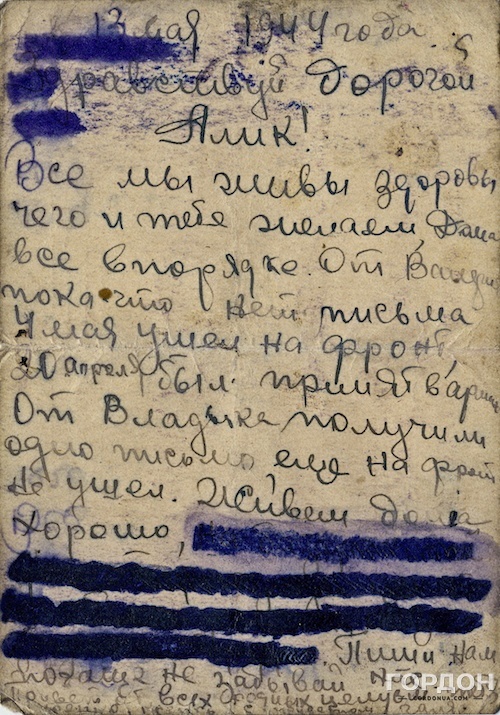 13 мая 1944 года
Здравствуй дорогой
Алик!
Все мы живы здоровы
чего и тебе желаем, Дома
все в порядке. От
пока что нет письма
4 мая ушел на фронт,
20 апреля был принят в армию
От Владика получили
одно письмо еще на фронт
не ушел. Живем дома
хорошо,
Пиши нам
не забывай
Привет от всех родных целуем
ГОРДОН
GORDONUA.COM